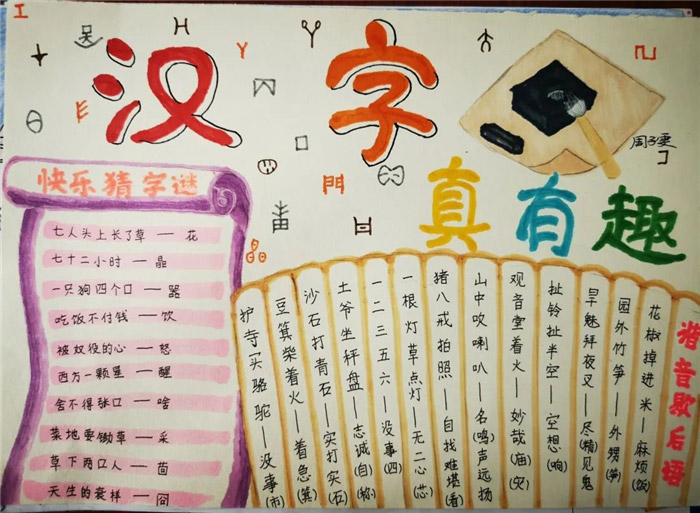 汉字
真有趣
周子垂
快乐猜字谜
七人头上长了草 — 花
七十二小时 — 晶
一只狗四个口 — 器
吃饭不付钱 — 饮
被奴役的心 — 怒
西方一颗星 — 醒
舍不得张口 — 啥
菜地要锄草 — 采
草下两口人 — 茴
天生的衰样 — 囧
谐音歇后语
花椒掉进米—麻烦(饭)
园外竹笋—外甥(笋)
旱魃拜夜叉—尽(精)见鬼
扯铃扯半空—空想(响)
观音堂着火—妙哉(庙)(灾)
山中吹喇叭—名(鸣)声远扬
猪八戒拍照—自找难堪(看)
一根灯草点灯—无二心(芯)
一二三五六—没事(四)
土爷坐秤盘—志诚(自)(称)
沙石打青石—实打实(石)
豆箕柴着火—着急(箕)
护寺买骆驼—没事(市)